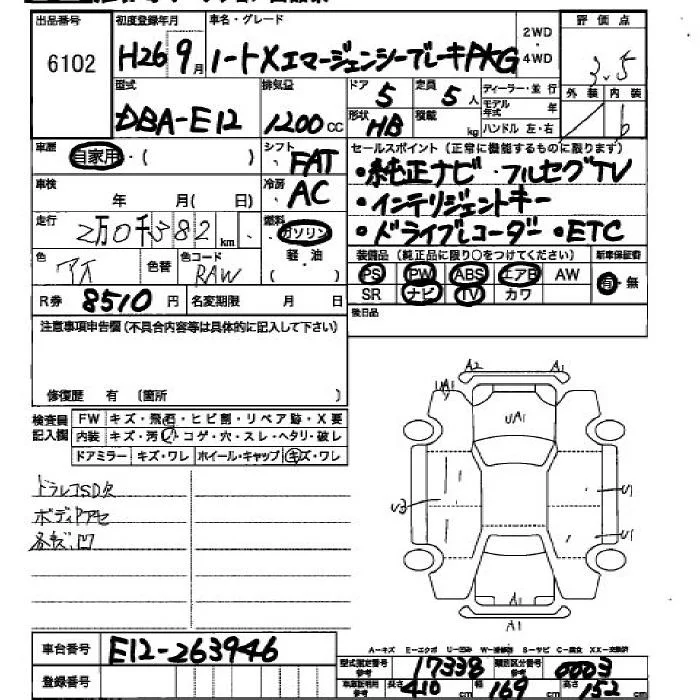 出品番号 初度登録年月 車名・グレード 2WD 評価点
6102 H26 9月 ノートXエマージェンシーブレーキPKG ・4WD 3.5
型式 排気量 ドア 定員 ディーラー・並行 外装 内装
DBA-E12 1200cc 5 5人 モデル年式 年 b
形状 HB 積載 kg ハンドル 左・右
車歴 自家用・( ) シフト FAT セールスポイント(正常に機能するものに限ります)
・純正ナビ・フルセグTV
車検 年 月( 日) 冷房 AC ・インテリジェントキー
走行 2万0千382km 燃料 ガソリン ・ドライブレコーダー・ETC
色 アイ 色替 色コード RAW 軽・油 ( )
装備品(純正品に限り○をつけてください) 新車保証書
PS PW ABS エアB AW 有・無
SR ナビ TV カワ
R券 8510円 名変期限 月 日 後日品
注意事項申告欄(不具合内容等は具体的に記入して下さい)
修復歴 有 〔箇所 〕
検査員記入欄 FW キズ・飛石・ヒビ割・リペア跡・X要
内装 キズ・汚・コゲ・穴・スレ・ヘタリ・破レ
ドアミラー キズ・ワレ ホイール・キャップ キズ・ワレ
ドラレコSD欠
ボディアセ
各キズ、凹
A2 A1
UA1 UA1
U3 U1
U1
A1
A1
車台番号 E12-263946
登録番号
A-キズ E-エクボ U-凹み W-補修跡 S-サビ C-腐食 XX-交換済
型式指定番号 参考 17338 類別区分番号 参考 0003
車庫証明用 参考 長さ 410cm 幅 169cm 高さ 152cm